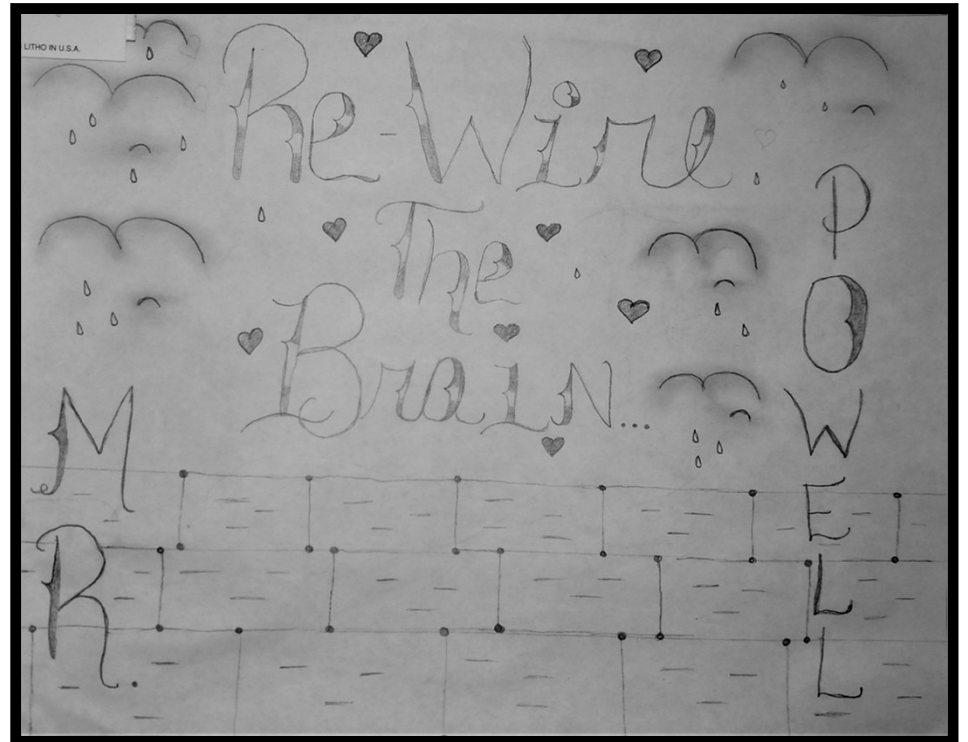 LITHO IN U.S.A.
Re-Wire
The
BraiN...
MR.
POWELL